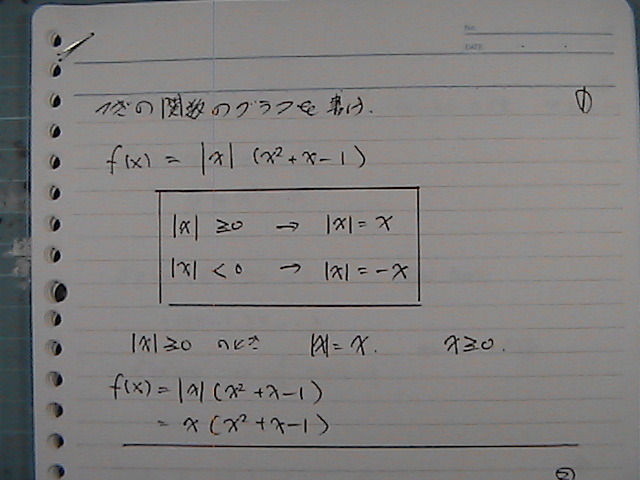 No.
DATE
次の関数のグラフを書け. ①
f(x) = |x| (x²+x-1)
|x| ≥0 → |x|= x
|x| < 0 → |x|= -x
|x|≥0 のとき |x|= x. x≥0.
f(x) = |x| (x²+x-1)
= x (x²+x-1)
②